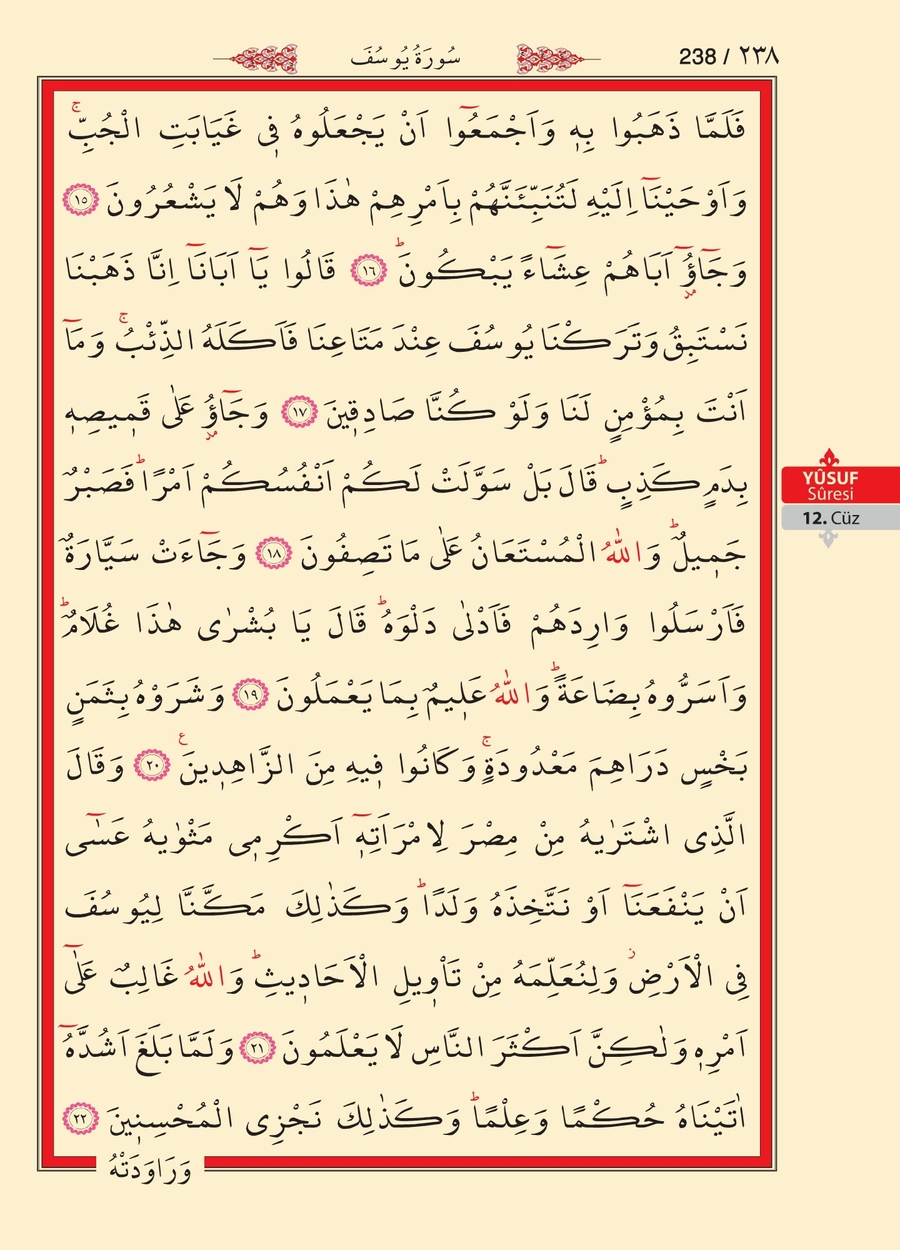 238 / ٢٣٨
سُورَةُ يُوسُفَ
فَلَمَّا ذَهَبُوا بِهٖ وَاَجْمَعُٓوا اَنْ يَجْعَلُوهُ فٖى غَيَابَتِ الْجُبِّۚ
وَاَوْحَيْنَٓا اِلَيْهِ لَتُنَبِّئَنَّهُمْ بِاَمْرِهِمْ هٰذَا وَهُمْ لَا يَشْعُرُونَ ﴿١٥﴾
وَجَٓاؤُٓ اَبَاهُمْ عِشَٓاءً يَبْكُونَؕ ﴿١٦﴾ قَالُوا يَٓا اَبَانَٓا اِنَّا ذَهَبْنَا
نَسْتَبِقُ وَتَرَكْنَا يُوسُفَ عِنْدَ مَتَاعِنَا فَاَكَلَهُ الذِّئْبُۚ وَمَٓا
اَنْتَ بِمُؤْمِنٍ لَنَا وَلَوْ كُنَّا صَادِقٖينَ ﴿١٧﴾ وَجَٓاؤُ عَلٰى قَمٖيصِهٖ
بِدَمٍ كَذِبٍؕ قَالَ بَلْ سَوَّلَتْ لَكُمْ اَنْفُسُكُمْ اَمْرًاؕ فَصَبْرٌ
جَمٖيلٌؕ وَاللّٰهُ الْمُسْتَعَانُ عَلٰى مَا تَصِفُونَ ﴿١٨﴾ وَجَٓاءَتْ سَيَّارَةٌ
فَاَرْسَلُوا وَارِدَهُمْ فَاَدْلٰى دَلْوَهُؕ قَالَ يَا بُشْرٰى هٰذَا غُلَامٌؕ
وَاَسَرُّوهُ بِضَاعَةًؕ وَاللّٰهُ عَلٖيمٌ بِمَا يَعْمَلُونَ ﴿١٩﴾ وَشَرَوْهُ بِثَمَنٍ
بَخْسٍ دَرَاهِمَ مَعْدُودَةٍۚ وَكَانُوا فٖيهِ مِنَ الزَّاهِدٖينَ ع ﴿٢٠﴾ وَقَالَ
الَّذِى اشْتَرٰيهُ مِنْ مِصْرَ لِامْرَاَتِهٖٓ اَكْرِمٖى مَثْوٰيهُ عَسٰٓى
اَنْ يَنْفَعَنَٓا اَوْ نَتَّخِذَهُ وَلَدًاؕ وَكَذٰلِكَ مَكَّنَّا لِيُوسُفَ
فِى الْاَرْضِؗ وَلِنُعَلِّمَهُ مِنْ تَاْوٖيلِ الْاَحَادٖيثِؕ وَاللّٰهُ غَالِبٌ عَلٰٓى
اَمْرِهٖ وَلٰكِنَّ اَكْثَرَ النَّاسِ لَا يَعْلَمُونَ ﴿٢١﴾ وَلَمَّا بَلَغَ اَشُدَّهُٓ
اٰتَيْنَاهُ حُكْمًا وَعِلْمًاؕ وَكَذٰلِكَ نَجْزِى الْمُحْسِنٖينَ ﴿٢٢﴾
وَرَاوَدَتْهُ
YÛSUF
Sûresi
12. Cüz